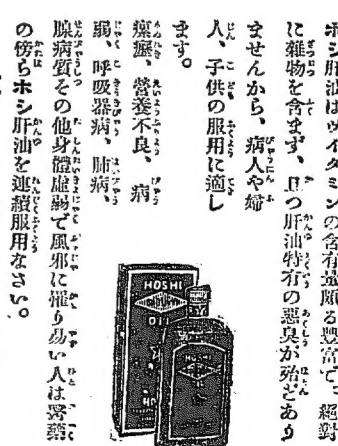 ホシ肝油はヴイタミンの含有量頗る豊富で、絕對
に雜物を含まず、且つ肝油特有の惡臭が殆どあり
ませんから、病人や婦
人、子供の服用に適し
ます。
瘰癧、營養不良、病
弱、呼吸器病、肺病、
腺病質その他身體虛弱で風邪に罹り易い人は醫藥
の傍らホシ肝油を連續服用なさい。
HOSHI
OIL
HOSHI